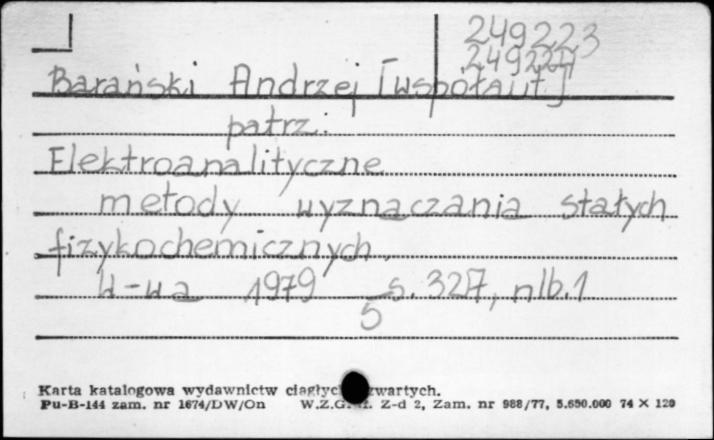 249223
249224
Barański Andrzej [współaut]
patrz:
Elektroanalityczne
metody wyznaczania stałych
fizykochemicznych.
W-wa 1979 s. 327, nlb. 1
5
Karta katalogowa wydawnictw ciągłych zwartych.
Pu-B-144 zam. nr 1674/DW/On W.Z.G. Z-d 2, Zam. nr 988/77, 5.650.000 74 X 120